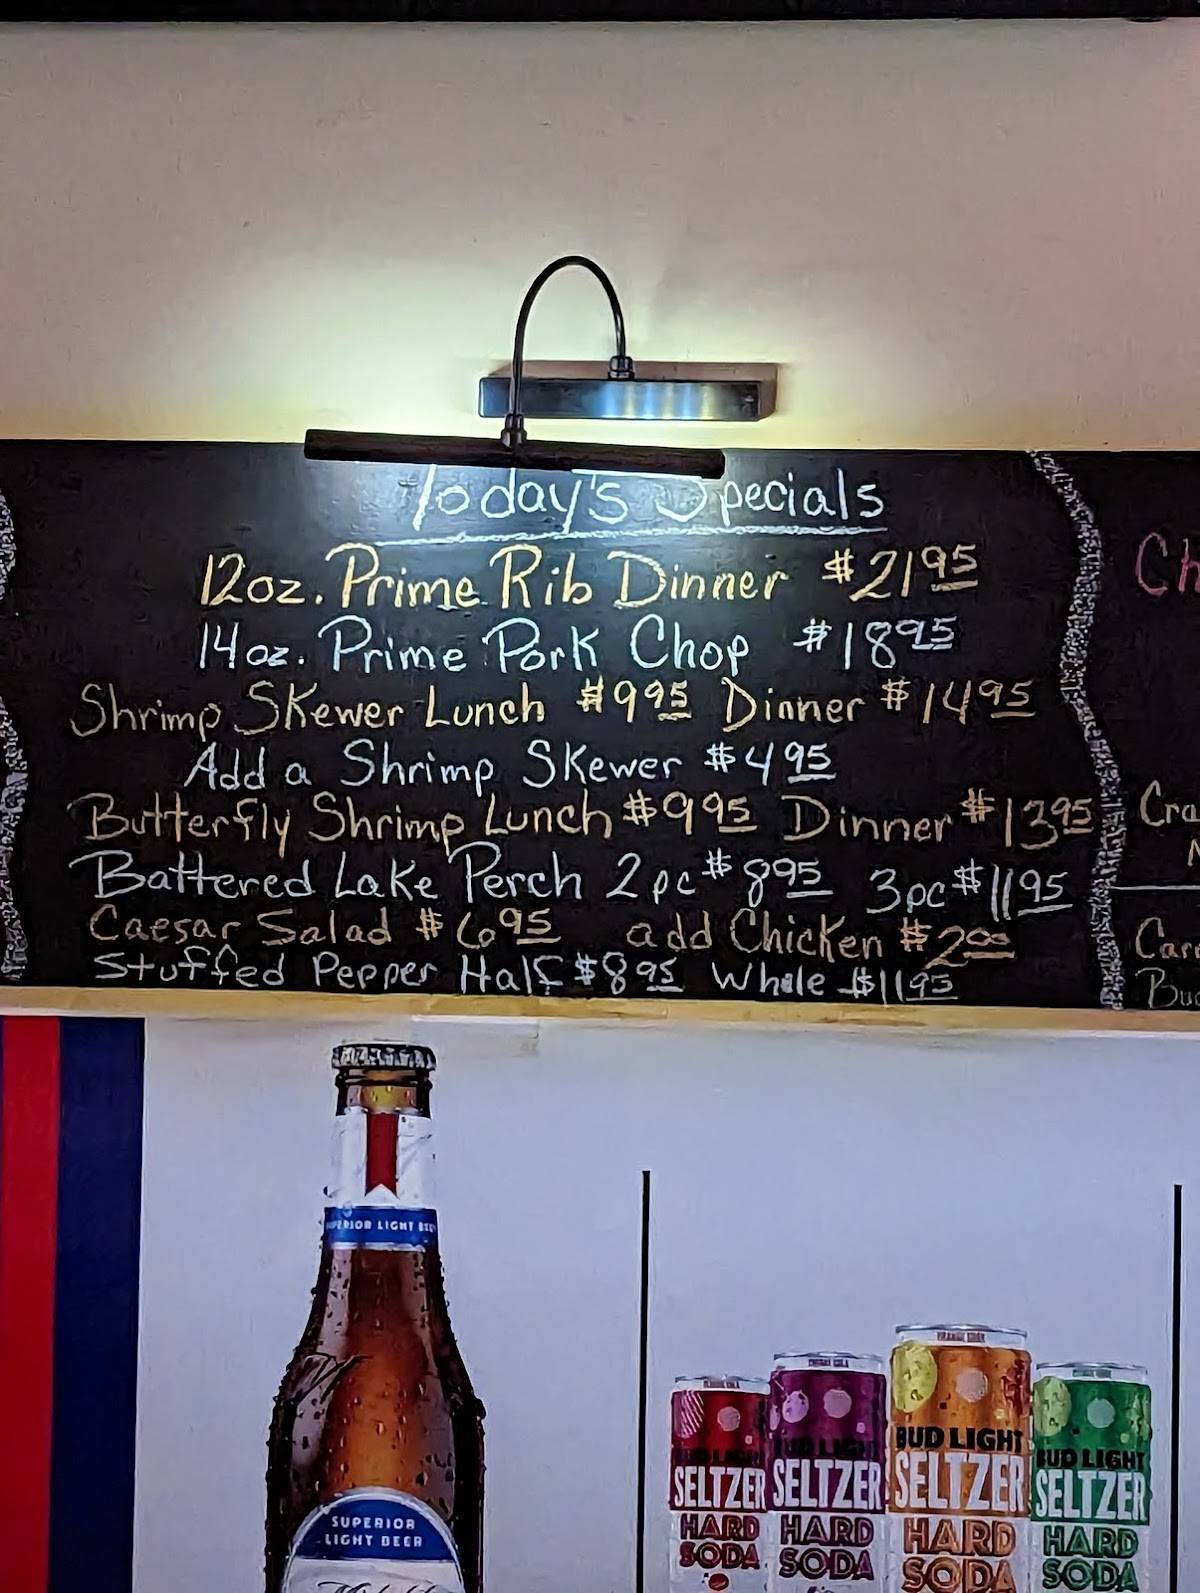 Today's Specials
12oz. Prime Rib Dinner $21.95
14oz. Prime Pork Chop $18.95
Shrimp Skewer Lunch $9.95 Dinner $14.95
Add a Shrimp Skewer $4.95
Butterfly Shrimp Lunch $9.95 Dinner $13.95
Battered Lake Perch 2pc $8.95 3pc $11.95
Caesar Salad $6.95 add Chicken $2.00
Stuffed Pepper Half $8.95 Whole $11.95
SUPERIOR LIGHT BEER
SUPERIOR
LIGHT BEER
CHERRY COLA
ORANGE SODA
BUD LIGHT
SELTZER
HARD
SODA
BUD LIGHT
SELTZER
HARD
SODA
BUD LIGHT
SELTZER
HARD
SODA
BUD LIGHT
SELTZER
HARD
SODA